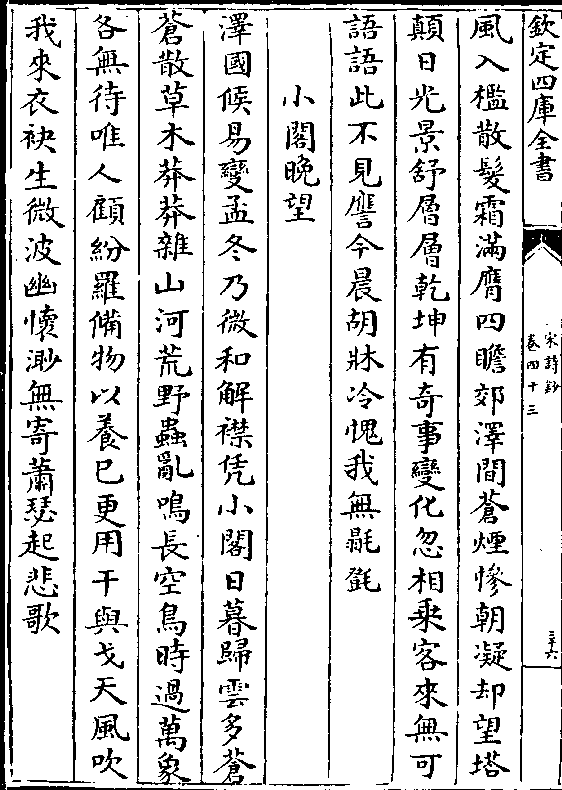 欽定四庫全書
宋詩鈔
卷四十三
三十六
風入檻散髮霜滿膺四瞻郊澤間蒼煙慘朝凝却望塔
顛日光景舒層層乾坤有奇事變化忽相乗客來無可
語語此不見譍今晨胡牀冷愧我無毾㲪
小閣晚望
澤國候易變孟冬乃微和解襟凭小閣日暮歸雲多蒼
蒼散草木莽莽雜山河荒野蟲亂鳴長空鳥時過萬象
各無待唯人顧紛羅備物以養已更用干與戈天風吹
我來衣袂生微波幽懷渺無寄蕭瑟起悲歌